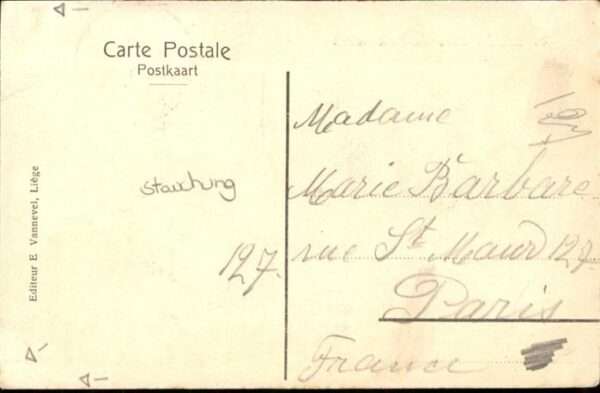 Carte Postale
Postkaart
Editeur E Vannevel, Liège
Stauchung
127.
Madame
Marie Barbare
rue St Maur 127
Paris
France